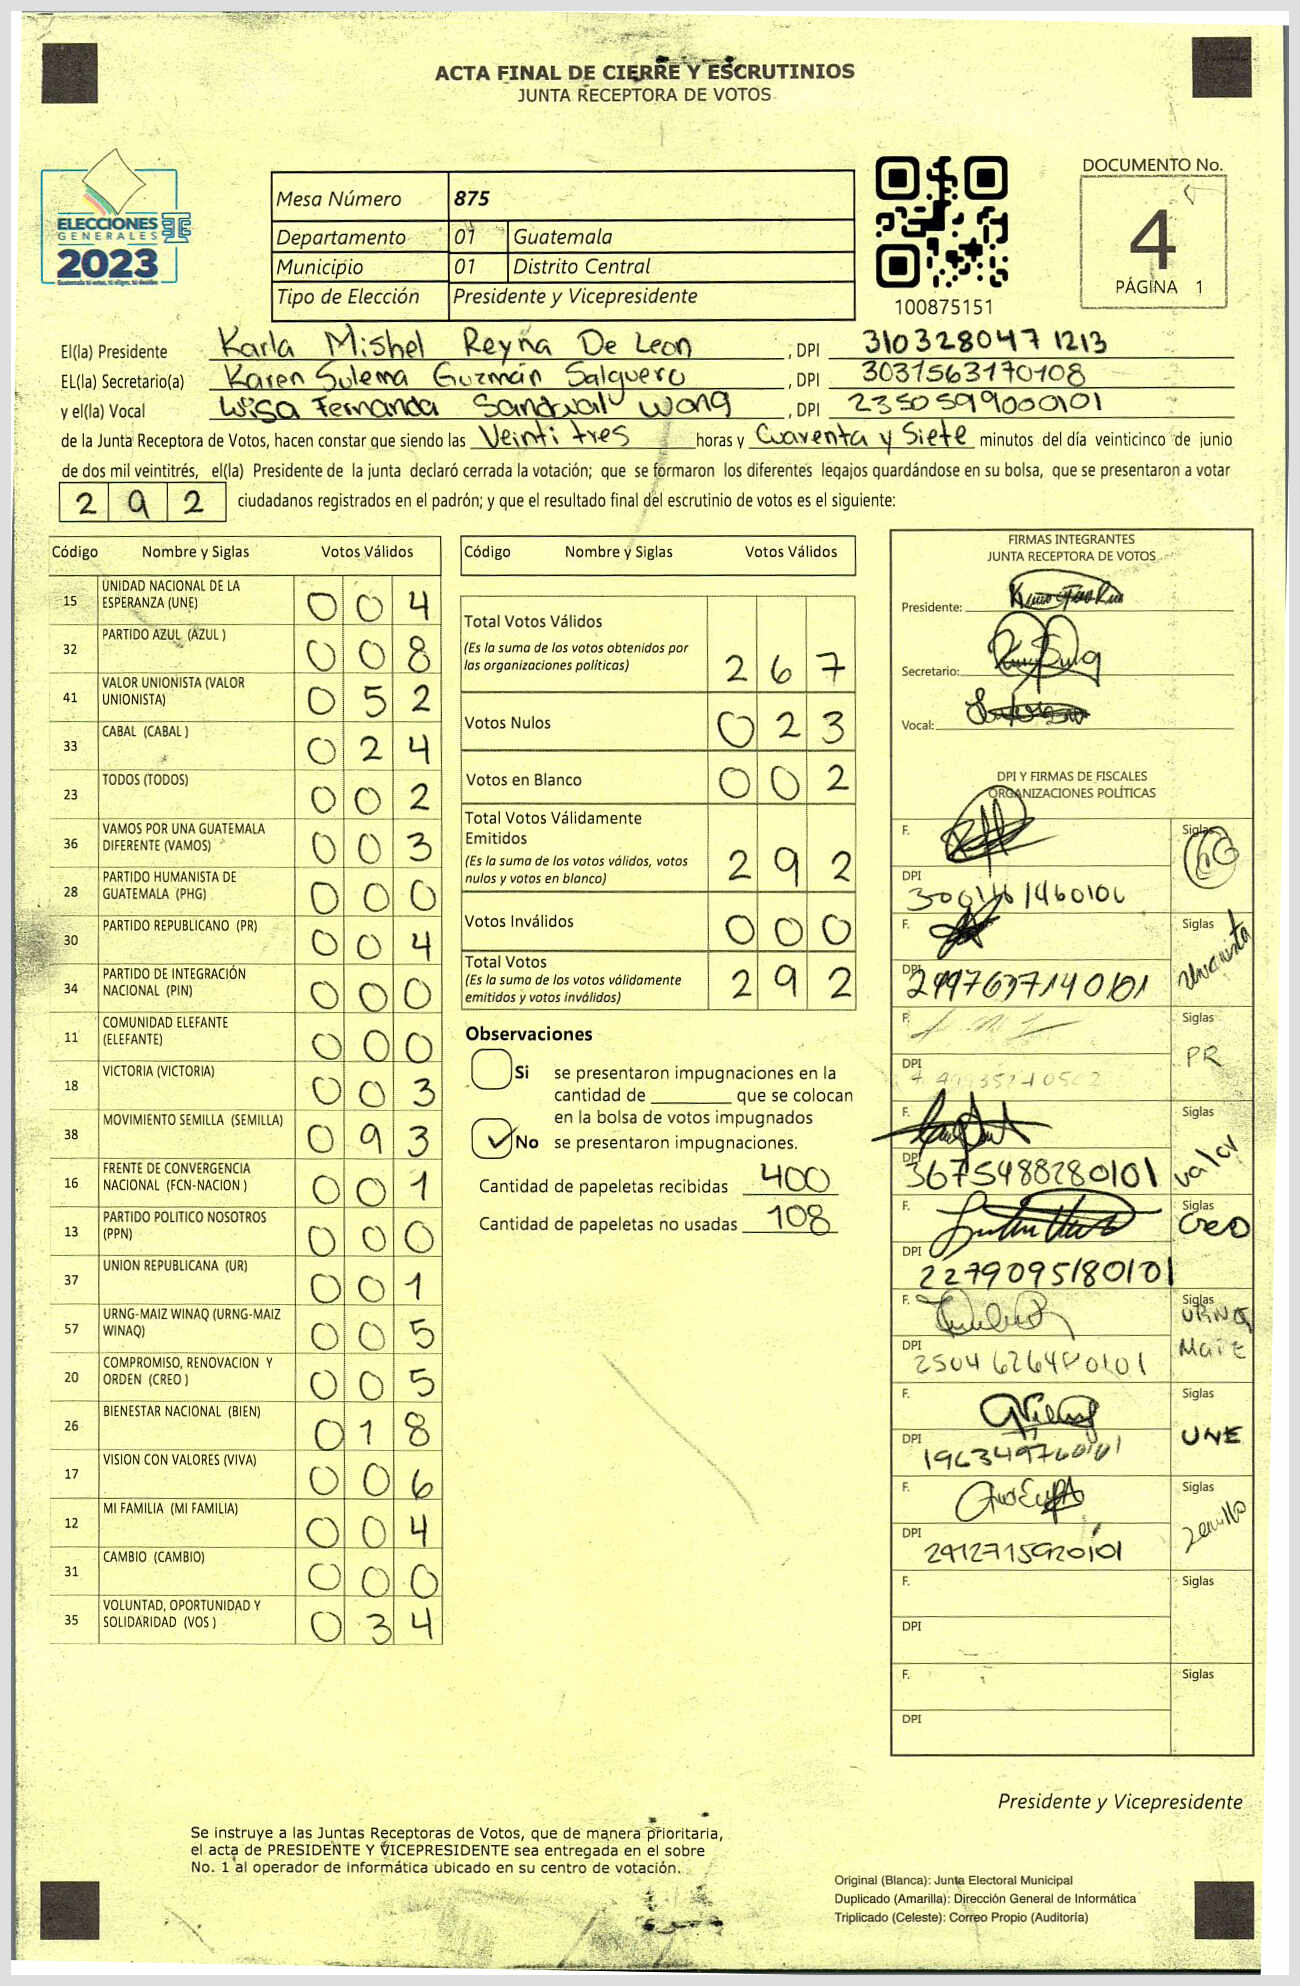 ACTA FINAL DE CIERRE Y ESCRUTINIOS
JUNTA RECEPTORA DE VOTOS
ELECCIONES
GENERALES
2023
Mesa Número 875
Departamento 01 Guatemala
Municipio 01 Distrito Central
Tipo de Elección Presidente y Vicepresidente
100875151
DOCUMENTO No.
4
PÁGINA 1
El(la) Presidente Karla Mishel Reyna De Leon, DPI 310328047 1213
EL(la) Secretario(a) Karen Sulema Guzmán Salguero, DPI 3031563170108
y el(la) Vocal Luisa Fernanda Sandoval Wong, DPI 2350599000101
de la Junta Receptora de Votos, hacen constar que siendo las Veinti tres horas y Cuarenta y Siete minutos del día veinticinco de junio
de dos mil veintitrés, el(la) Presidente de la junta declaró cerrada la votación; que se formaron los diferentes legajos guardándose en su bolsa, que se presentaron a votar
292 ciudadanos registrados en el padrón; y que el resultado final del escrutinio de votos es el siguiente:
Código Nombre y Siglas Votos Válidos
15 UNIDAD NACIONAL DE LA ESPERANZA (UNE) 004
32 PARTIDO AZUL (AZUL ) 008
41 VALOR UNIONISTA (VALOR UNIONISTA) 052
33 CABAL (CABAL ) 024
23 TODOS (TODOS) 002
36 VAMOS POR UNA GUATEMALA DIFERENTE (VAMOS) 003
28 PARTIDO HUMANISTA DE GUATEMALA (PHG) 000
30 PARTIDO REPUBLICANO (PR) 004
34 PARTIDO DE INTEGRACIÓN NACIONAL (PIN) 000
11 COMUNIDAD ELEFANTE (ELEFANTE) 000
18 VICTORIA (VICTORIA) 003
38 MOVIMIENTO SEMILLA (SEMILLA) 093
16 FRENTE DE CONVERGENCIA NACIONAL (FCN-NACION ) 001
13 PARTIDO POLITICO NOSOTROS (PPN) 000
37 UNION REPUBLICANA (UR) 001
57 URNG-MAIZ WINAQ (URNG-MAIZ WINAQ) 005
20 COMPROMISO, RENOVACION Y ORDEN (CREO ) 005
26 BIENESTAR NACIONAL (BIEN) 018
17 VISION CON VALORES (VIVA) 006
12 MI FAMILIA (MI FAMILIA) 004
31 CAMBIO (CAMBIO) 000
35 VOLUNTAD, OPORTUNIDAD Y SOLIDARIDAD (VOS ) 034
Código Nombre y Siglas Votos Válidos
Total Votos Válidos
(Es la suma de los votos obtenidos por
las organizaciones políticas) 267
Votos Nulos 023
Votos en Blanco 002
Total Votos Válidamente
Emitidos
(Es la suma de los votos válidos, votos
nulos y votos en blanco) 292
Votos Inválidos 000
Total Votos
(Es la suma de los votos válidamente
emitidos y votos inválidos) 292
Observaciones
Si se presentaron impugnaciones en la
cantidad de ________ que se colocan
en la bolsa de votos impugnados
No se presentaron impugnaciones.
Cantidad de papeletas recibidas 400
Cantidad de papeletas no usadas 108
FIRMAS INTEGRANTES
JUNTA RECEPTORA DE VOTOS
Presidente:
Secretario:
Vocal:
DPI Y FIRMAS DE FISCALES
ORGANIZACIONES POLÍTICAS
F. Siglas
DPI
F. Siglas Unionista
DPI
F. Siglas PR
DPI
F. Siglas Valor
DPI 3675488280101
F. Siglas Creo
DPI 2279095180101
F. Siglas URNG Maiz
DPI
F. Siglas UNE
DPI 196349760101
F. Siglas
DPI
F. Siglas
DPI
F. Siglas
DPI
Presidente y Vicepresidente
Se instruye a las Juntas Receptoras de Votos, que de manera prioritaria,
el acta de PRESIDENTE Y VICEPRESIDENTE sea entregada en el sobre
No. 1 al operador de informática ubicado en su centro de votación.
Original (Blanca): Junta Electoral Municipal
Duplicado (Amarilla): Dirección General de Informática
Triplicado (Celeste): Correo Propio (Auditoría)